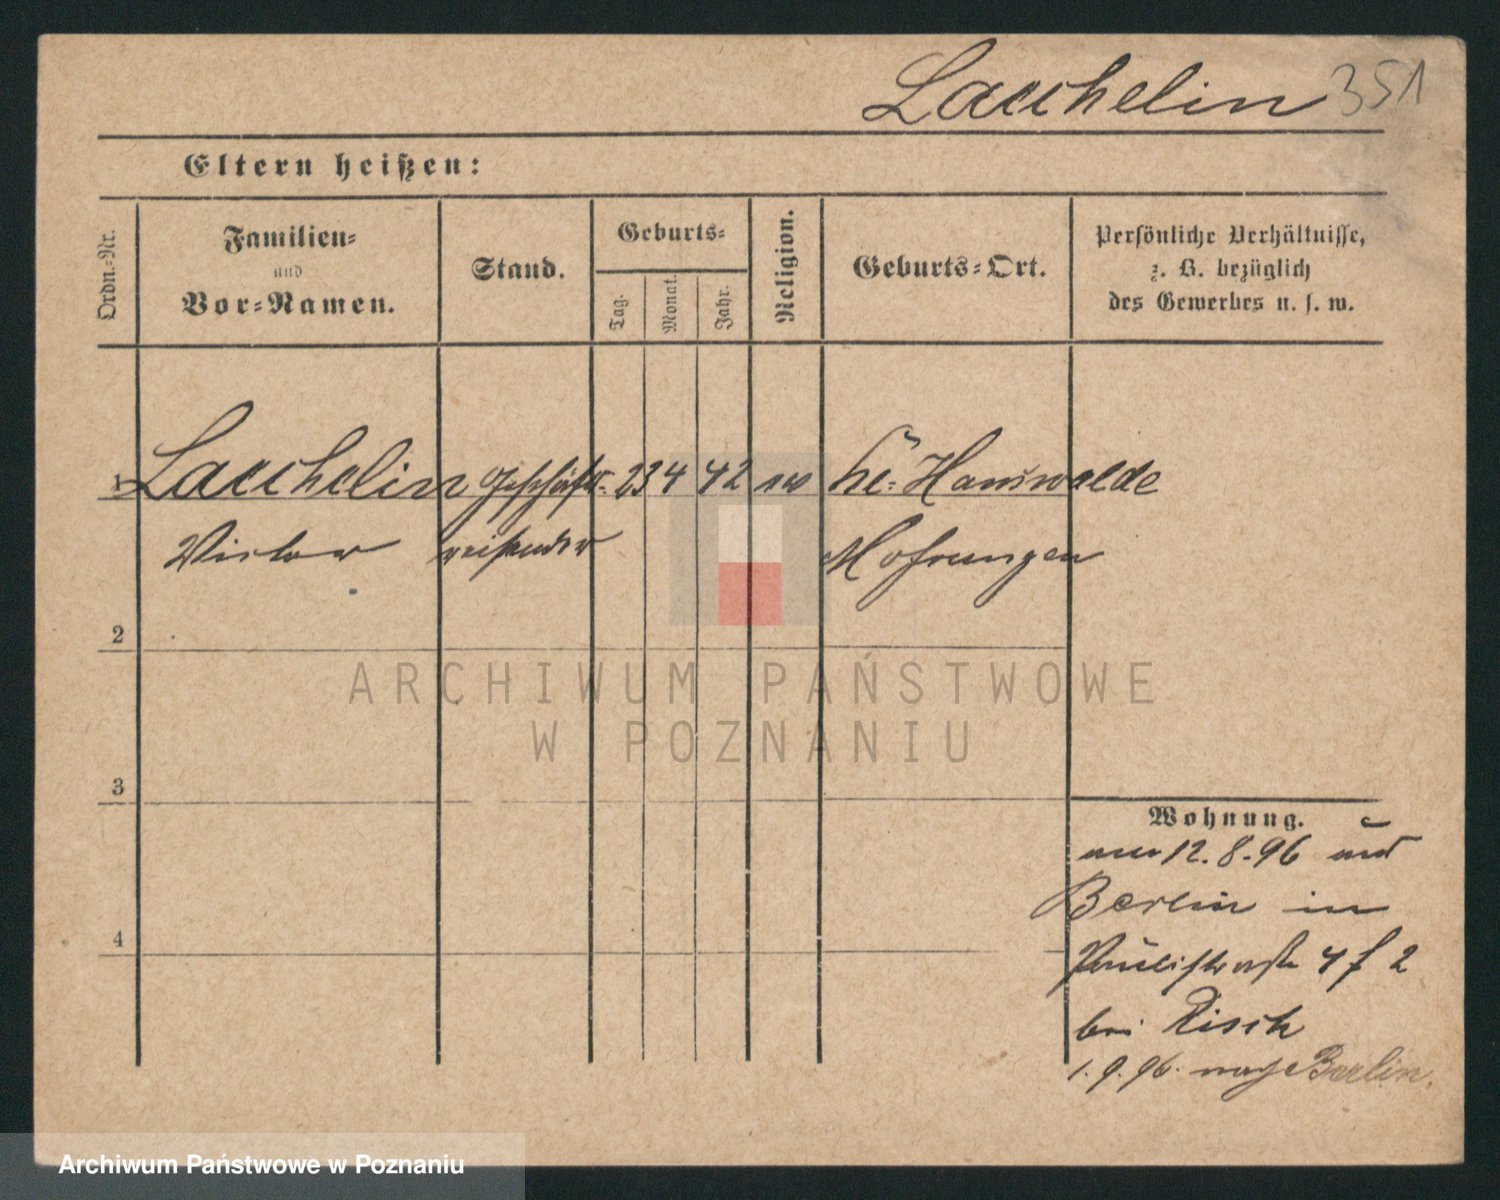 Lauchelin 351
Eltern heißen:
Ordn.-Nr.
Familien-
und
Vor-Namen.
Stand.
Geburts-
Tag.
Monat.
Jahr.
Religion.
Geburts-Ort.
Persönliche Verhältnisse,
z. B. bezüglich
des Gewerbes u. s. w.
1 Lauchelin Geschäfts- 23 4 42 Hanswalde
Victor reisender Mohrungen
2
3
4
Wohnung.
12.8.96
Berlin in
4 2
bei Risch
1.9.96. nach Berlin.
ARCHIWUM PAŃSTWOWE
W POZNANIU
Archiwum Państwowe w Poznaniu